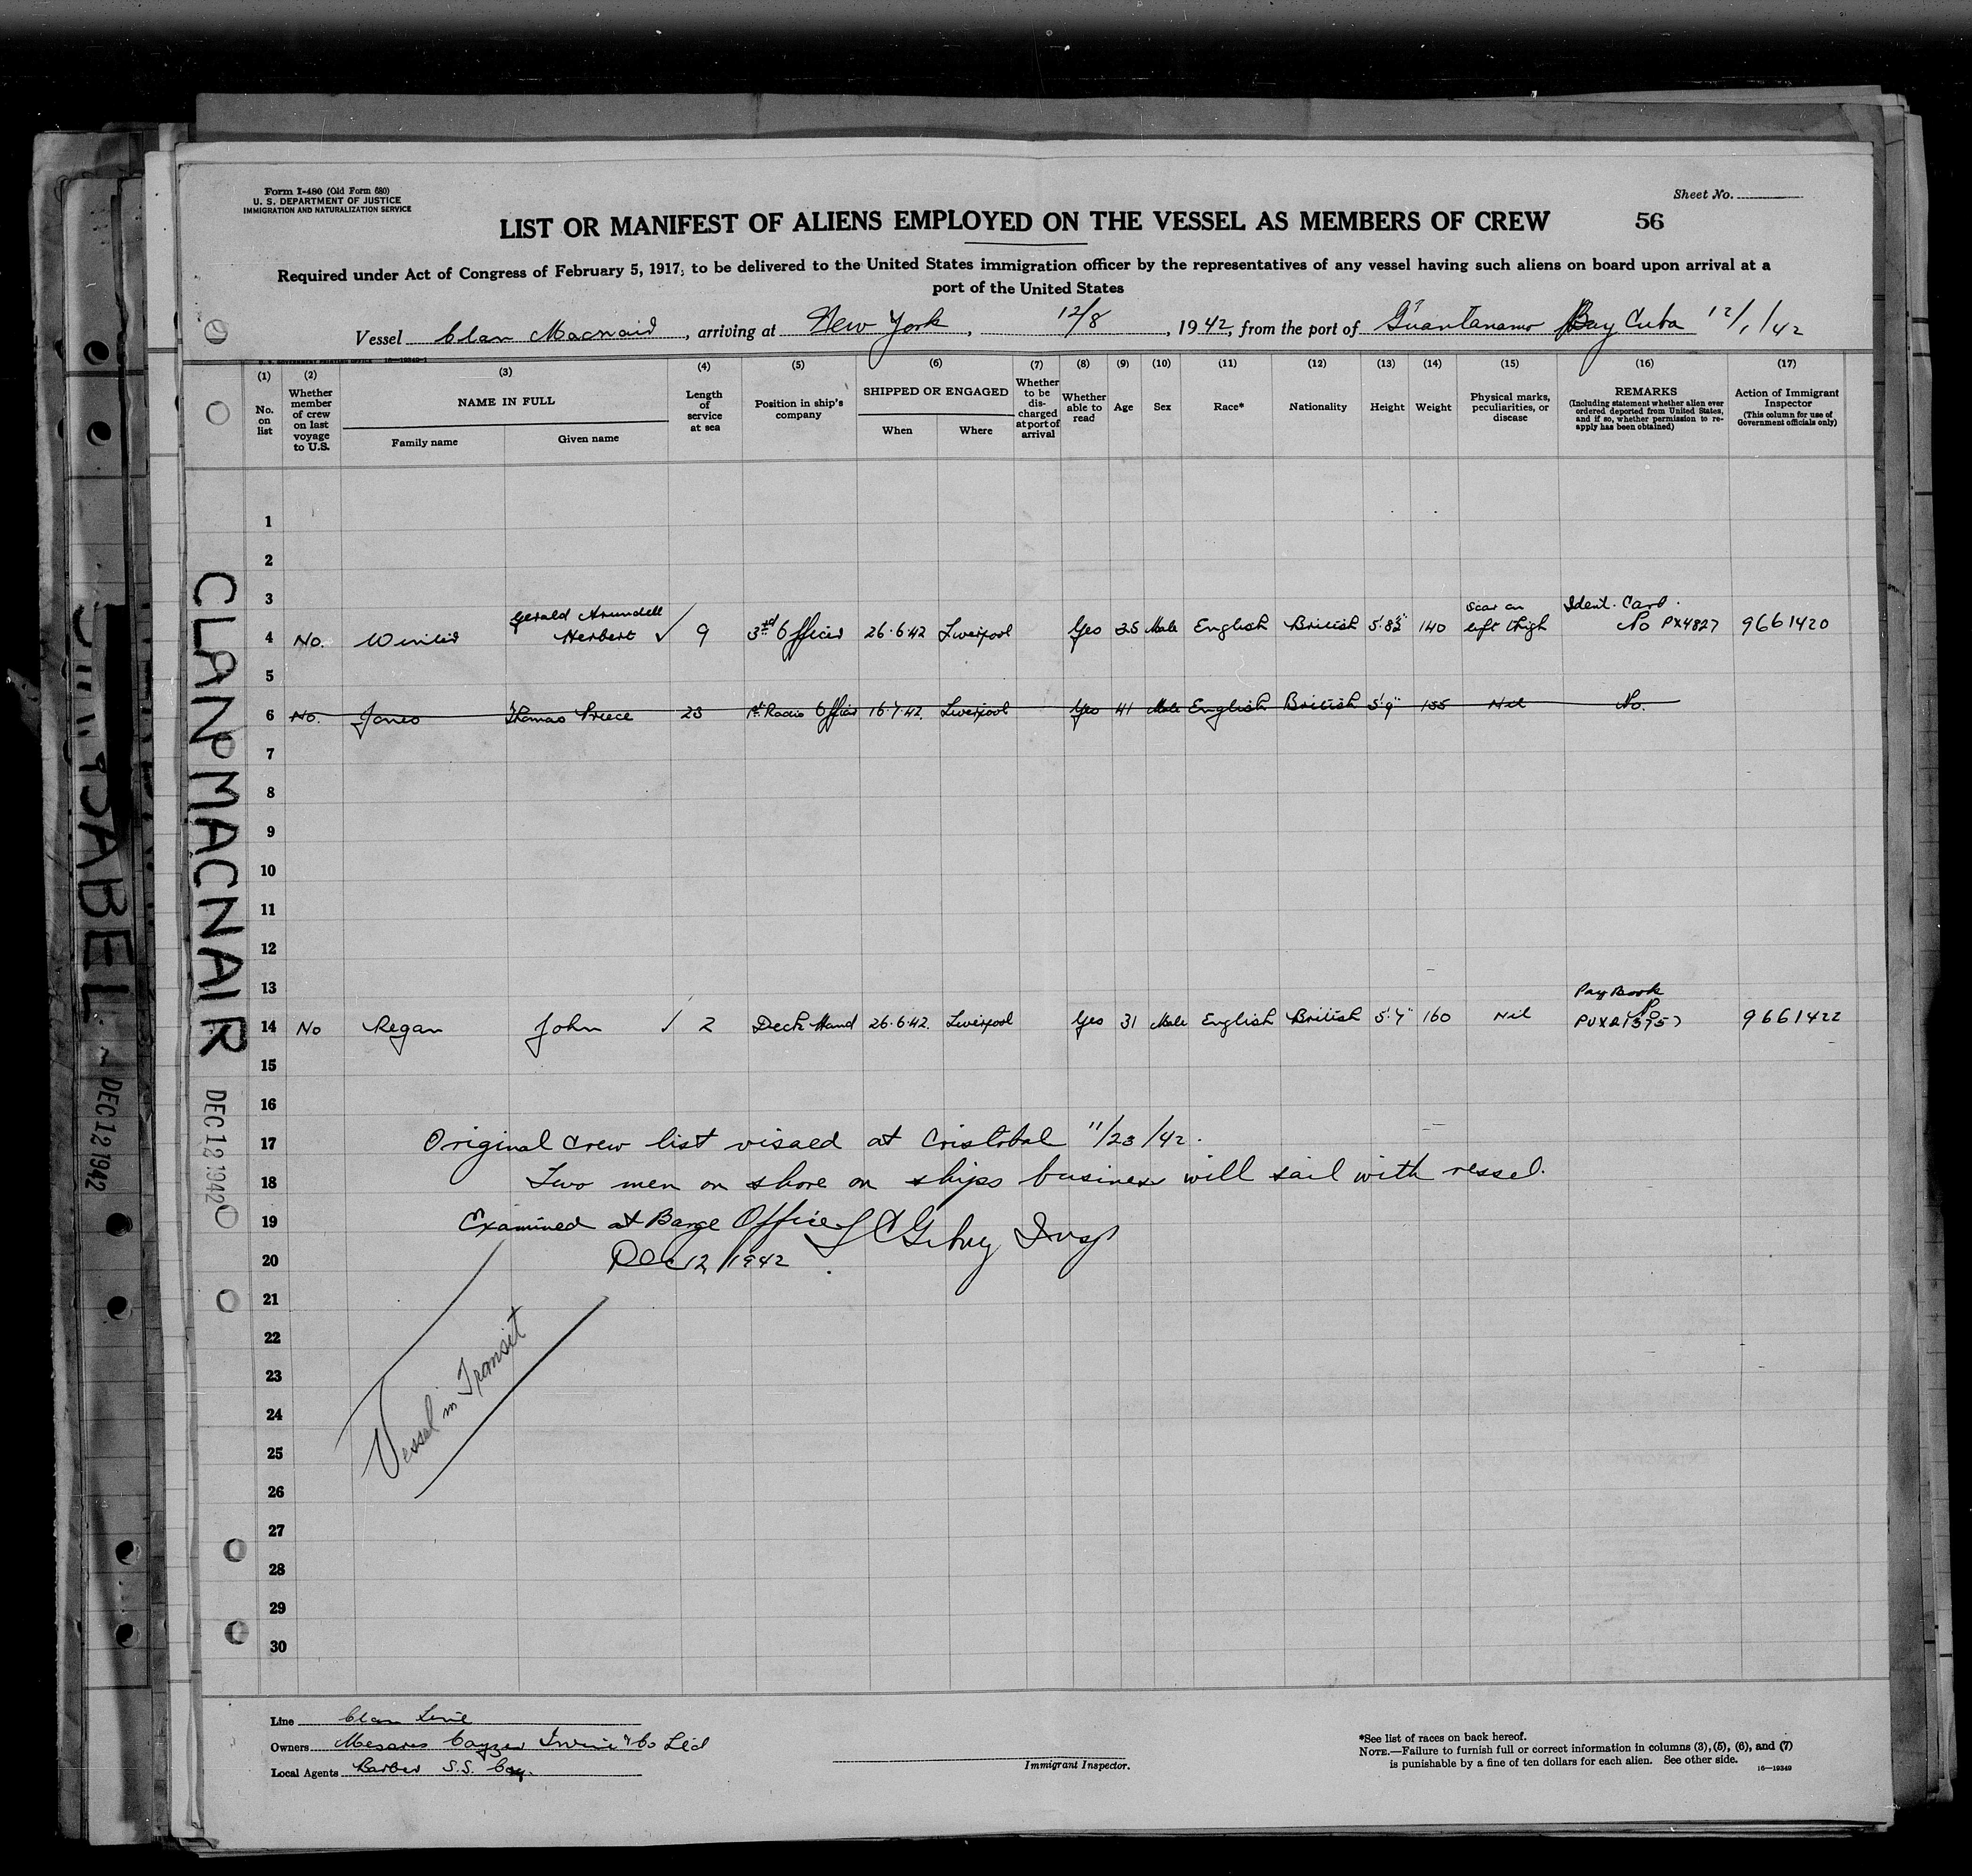 Form I-480 (Old Form 680)
U. S. DEPARTMENT OF JUSTICE
IMMIGRATION AND NATURALIZATION SERVICE
Sheet No.
LIST OR MANIFEST OF ALIENS EMPLOYED ON THE VESSEL AS MEMBERS OF CREW
56
Required under Act of Congress of February 5, 1917, to be delivered to the United States immigration officer by the representatives of any vessel having such aliens on board upon arrival at a
port of the United States
Vessel Clan Macnair, arriving at New York, 12/8, 1942, from the port of Guantanamo Bay Cuba 12/1/42
U. S. GOVERNMENT PRINTING OFFICE 16—19349-1
(1) No. on list
(2) Whether member of crew on last voyage to U.S.
(3) NAME IN FULL Family name Given name
(4) Length of service at sea
(5) Position in ship's company
(6) SHIPPED OR ENGAGED When Where
(7) Whether to be discharged at port of arrival
(8) Whether able to read
(9) Age
(10) Sex
(11) Race*
(12) Nationality
(13) Height
(14) Weight
(15) Physical marks, peculiarities, or disease
(16) REMARKS (Including statement whether alien ever ordered deported from United States, and if so, whether permission to reapply has been obtained)
(17) Action of Immigrant Inspector (This column for use of Government officials only)
1
2
3
Gerald Arundell scar on Ident. Card.
4 No. Herbert ✓ 9 3rd Officer 26.6.42 Liverpool Yes 25 Male English British 5'.8½" 140 left thigh No PX4827 9661420
5
6 No. Jones Thomas Preece 23 1st Radio Officer 16.7.42. Liverpool Yes 41 Male English British 5'.9" 155 Nil No.
7
8
9
10
11
12
13
Pay Book
14 No Regan John ✓ 2 Deck Hand 26.6.42. Liverpool Yes 31 Male English British 5'.7" 160 Nil No 9661422
15
16
17 Original crew list visaed at Cristobal 11/23/42.
18 Two men on shore on ships business will sail with vessel.
19 Examined at Barge Office Insp
20 Dec 12/1942
21
22
23
24
25
26
27
28
29
30
Vessel in Transit
CLAN MACNAIR
DEC 12 1942
ABEL ~ DEC 12 1942
Line Clan Line
Owners Messrs Cayzer Irvine & Co Ltd
Local Agents Barber S.S. Coy.
Immigrant Inspector.
*See list of races on back hereof.
NOTE.—Failure to furnish full or correct information in columns (3), (5), (6), and (7)
is punishable by a fine of ten dollars for each alien. See other side.
16—19349